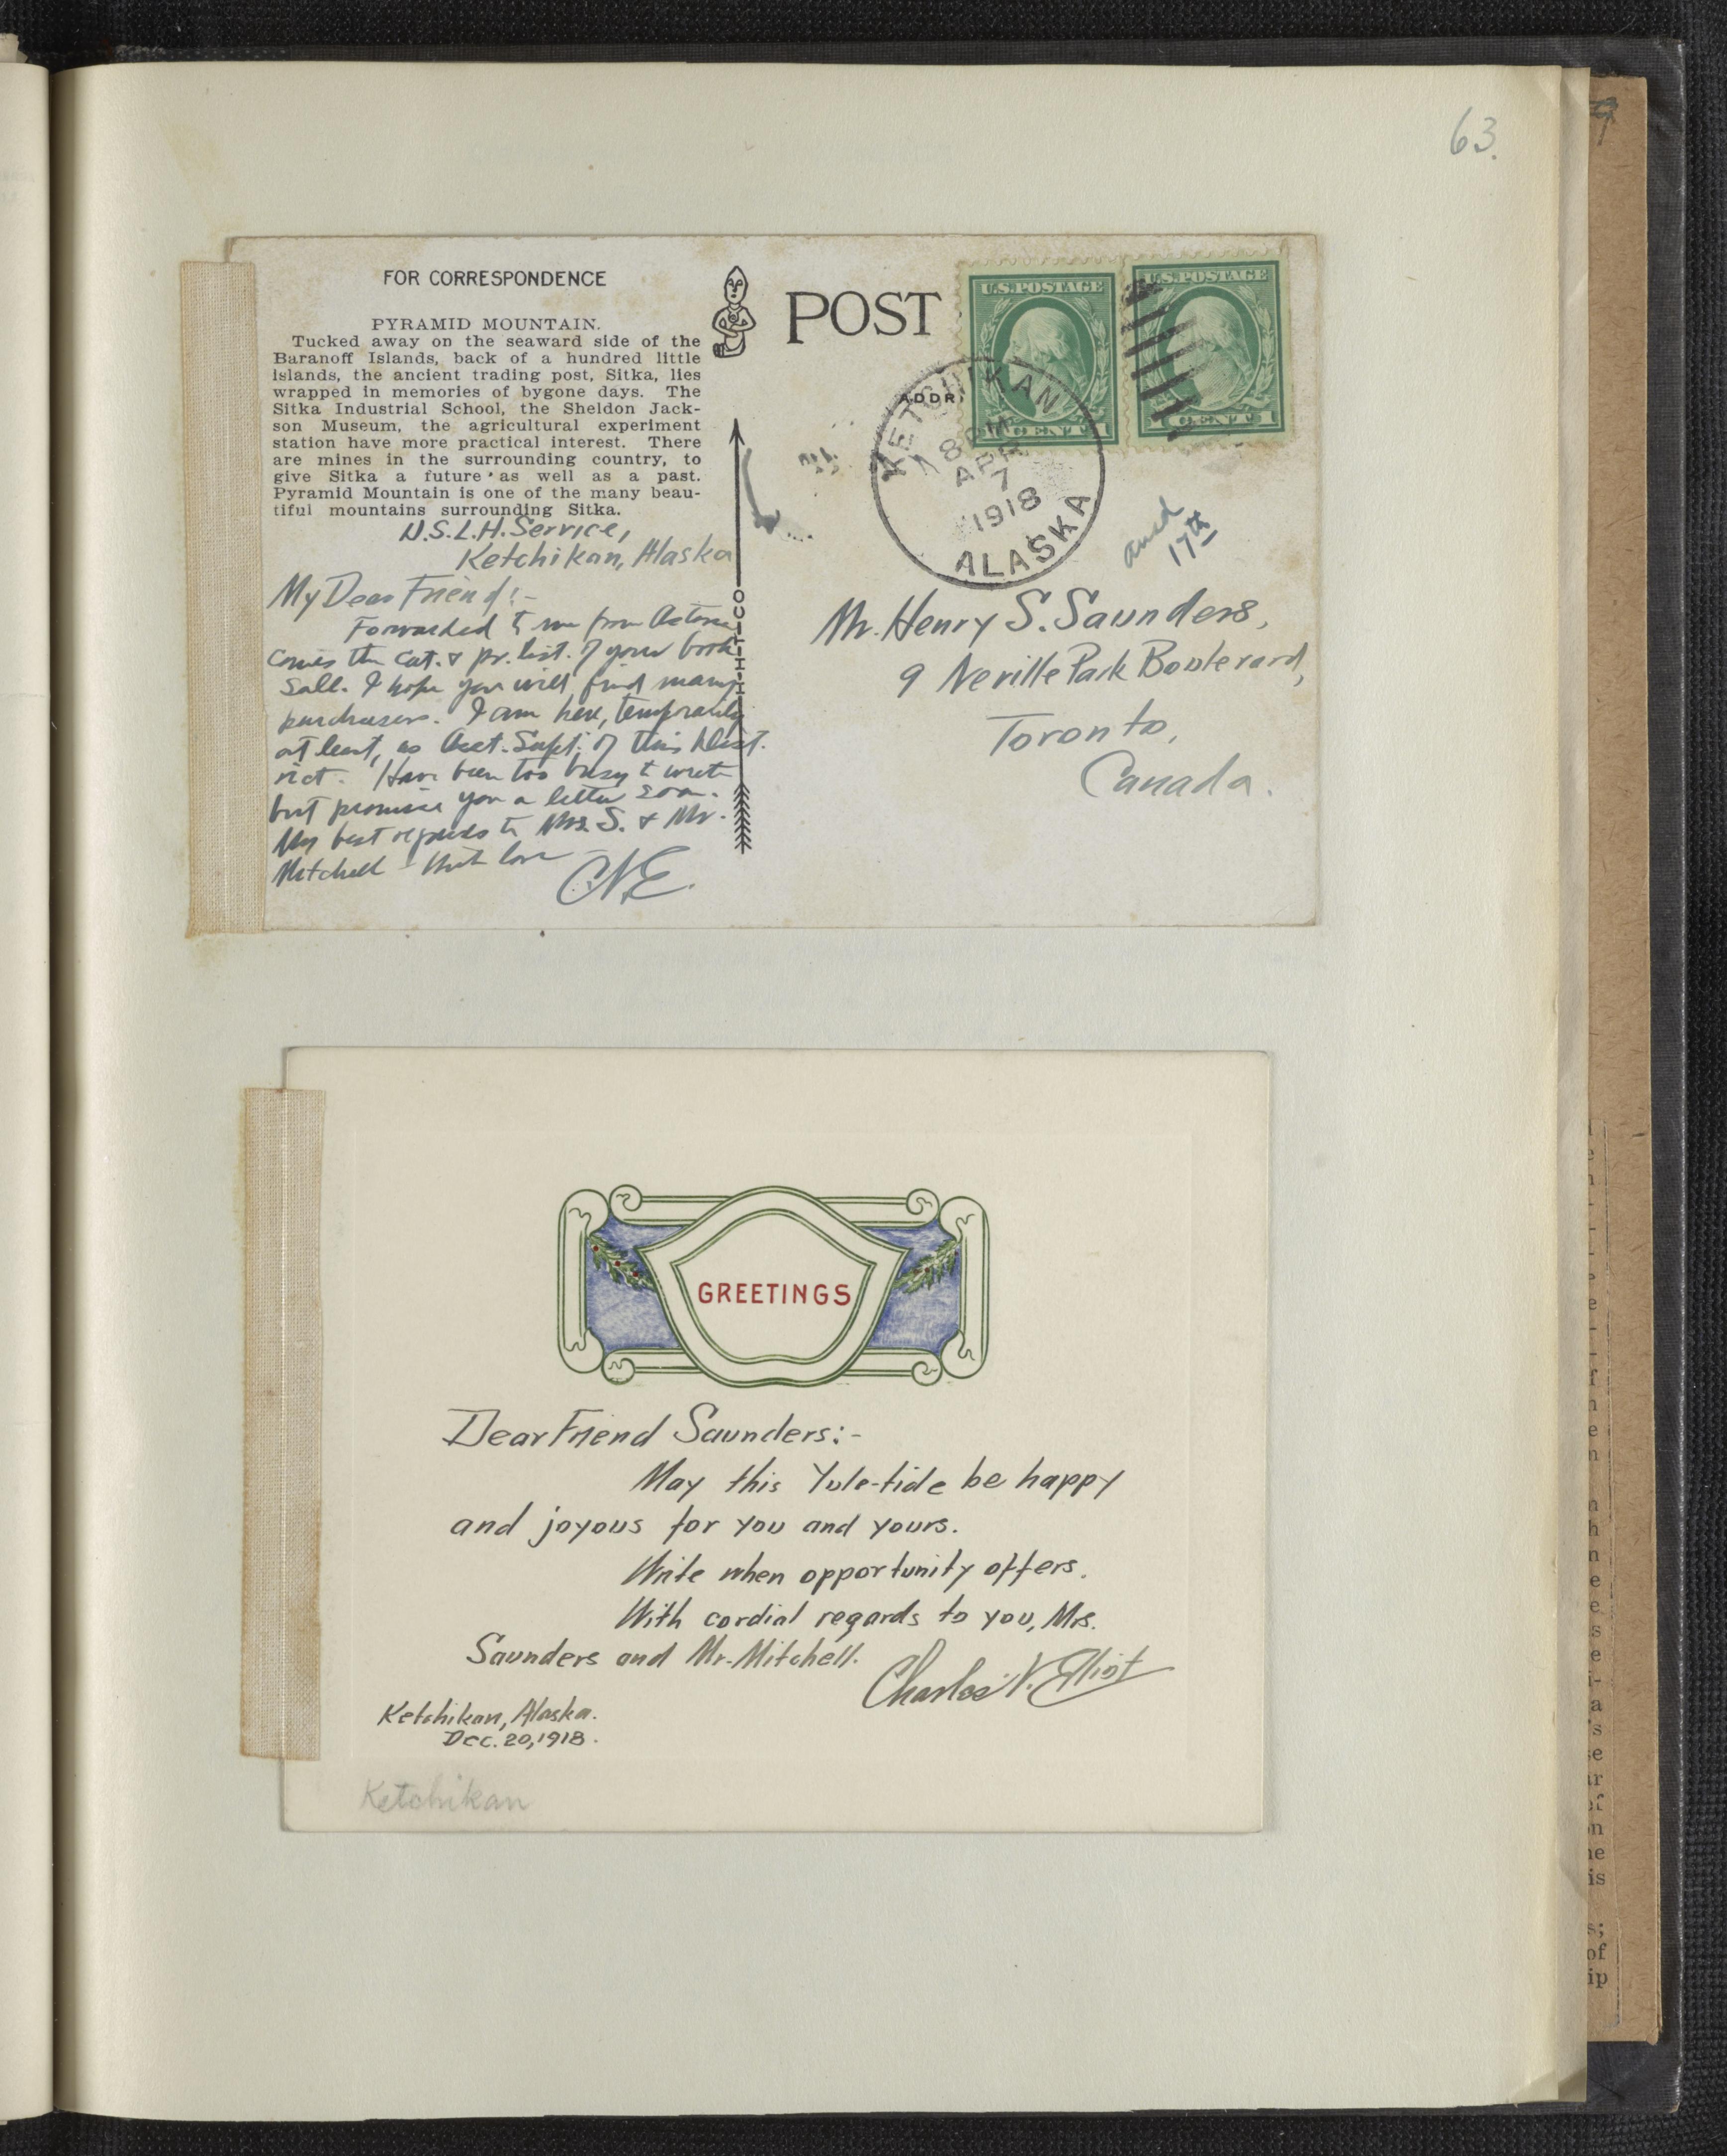 63.
FOR CORRESPONDENCE
PYRAMID MOUNTAIN.
Tucked away on the seaward side of the
Baranoff Islands, back of a hundred little
islands, the ancient trading post, Sitka, lies
wrapped in memories of bygone days. The
Sitka Industrial School, the Sheldon Jack-
son Museum, the agricultural experiment
station have more practical interest. There
are mines in the surrounding country, to
give Sitka a future as well as a past.
Pyramid Mountain is one of the many beau-
tiful mountains surrounding Sitka.
U.S.L.H. Service,
Ketchikan, Alaska
My Dear Friend:-
Forwarded to me from Astoria
comes the cat. & pr. list. of your book
sale. I hope you will find many
purchasers. I am here, temporarily
at least, as Asst. Supt. of this Dist-
rict. Have been too busy to write
but promise you a letter soon.
My best regards to Mrs. S. & Mr.
Mitchell - With love -
CNE.
POST
ADDR
U.S. POSTAGE
1 CENT 1
U.S. POSTAGE
1 CENT 1
KETCHIKAN
8 PM
APR
7
1918
ALASKA
ansd
17th
Mr. Henry S. Saunders,
9 Neville Park Boulevard,
Toronto,
Canada.
GREETINGS
Dear Friend Saunders:-
May this Yule-tide be happy
and joyous for you and yours.
Write when opportunity offers.
With cordial regards to you, Mrs.
Saunders and Mr. Mitchell.
Charles N. Elliot
Ketchikan, Alaska.
Dec. 20, 1918.
Ketchikan